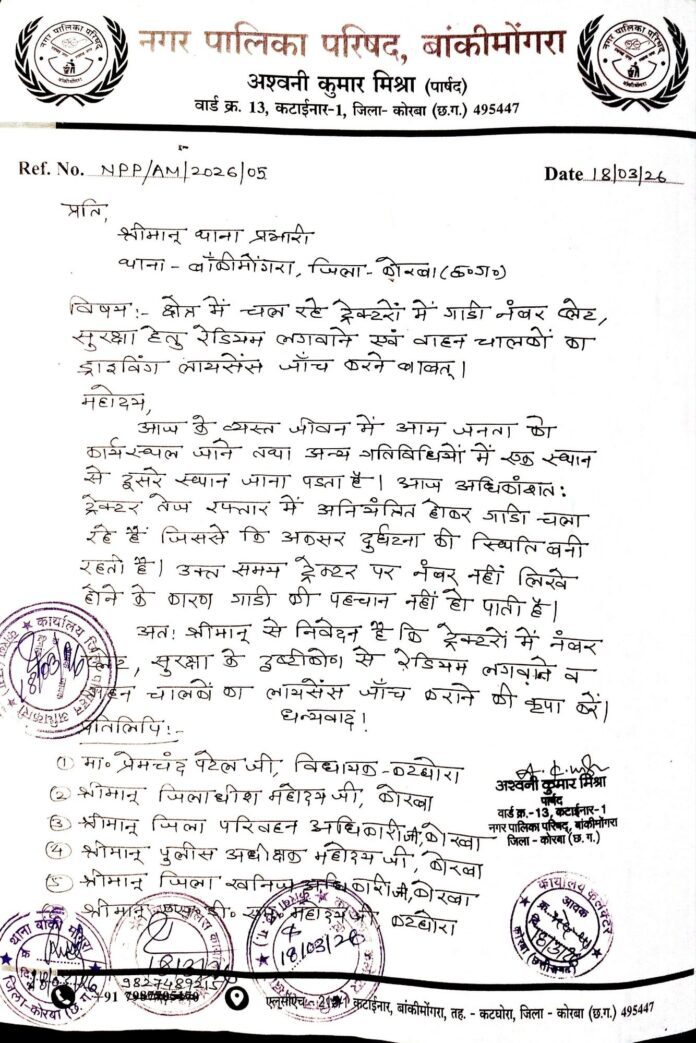 नगर पालिका परिषद, बांकीमोंगरा
अश्वनी कुमार मिश्रा (पार्षद)
वार्ड क्र. 13, कटाईनार-1, जिला- कोरबा (छ.ग.) 495447
Ref. No. NPP/AM/2026/05
Date 18/03/26
प्रति,
श्रीमान् थाना प्रभारी
थाना - बाँकीमोंगरा, जिला- कोरबा (छ०ग०)
विषय:- क्षेत्र में चल रहे ट्रेक्टरों में गाडी नंबर प्लेट,
सुरक्षा हेतु रेडियम लगवाने एवं वाहन चालकों का
ड्राइविंग लायसेंस जाँच करने बाबत्।
महोदय,
आज के व्यस्त जीवन में आम जनता को
कार्यस्थल जाने तथा अन्य गतिविधियों में एक स्थान
से दूसरे स्थान जाना पडता है। आज अधिकांशत:
ट्रेक्टर तेज रफ्तार में अनियंत्रित होकर गाडी चला
रहे हैं जिससे कि अक्सर दुर्घटना की स्थिति बनी
रहती है। उक्त समय ट्रेक्टर पर नंबर नहीं लिखे
होने के कारण गाडी की पहचान नहीं हो पाती है।
अत: श्रीमान् से निवेदन है कि ट्रेक्टरों में नंबर
प्लेट, सुरक्षा के दृष्टीकोण से रेडियम लगवाने व
वाहन चालकों का लायसेंस जाँच कराने की कृपा करें।
धन्यवाद!
प्रतिलिपि:-
① मा० प्रेमचंद पटेल जी, विधायक - कटघोरा
② श्रीमान् जिलाधीश महोदय जी, कोरबा
③ श्रीमान् जिला परिवहन अधिकारी जी, कोरबा
④ श्रीमान् पुलीस अधीक्षक महोदय जी, कोरबा
⑤ श्रीमान् जिला खनिज अधिकारी जी, कोरबा
श्रीमान् महोदय जी कटघोरा
अश्वनी कुमार मिश्रा
पार्षद
वार्ड क्र.-13, कटाईनार-1
नगर पालिका परिषद, बांकीमोंगरा
जिला - कोरबा (छ.ग.)
कार्यालय कलेक्टर
आवक
18/3/26
कोरबा (छत्तीसगढ़)
18/03/26
थाना बांकी मोंगरा
जिला-कोरबा (छ.ग.)
18/03/26
+91
कटाईनार, बांकीमोंगरा, तह. - कटघोरा, जिला - कोरबा (छ.ग.) 495447